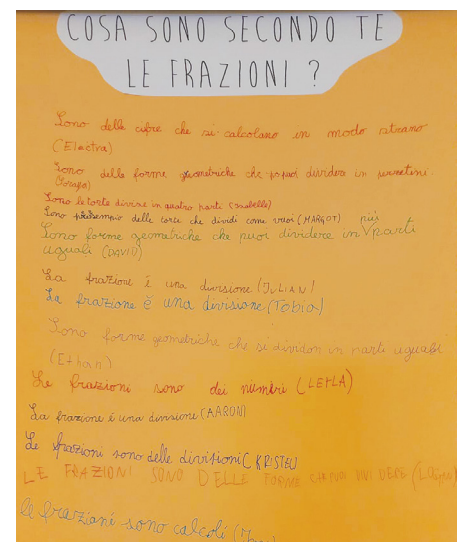 COSA SONO SECONDO TE
LE FRAZIONI ?
Sono delle cifre che si calcolano in modo strano
(Electra)
Sono delle forme geometriche che puoi dividere in pezzettini.
Sono le torte divise in quattro parti (Isabelle)
Sono per esempio delle torte che dividi come vuoi (MARGOT)
Sono forme geometriche che puoi dividere in più parti
uguali (DAVID)
La frazione é una divisione (JULIAN)
La frazione è una divisione (Tobia)
Sono forme geometriche che si dividon in parti uguali
(Ethan)
Le frazioni sono dei numeri (LEILA)
La frazione é una divisione (AARON)
Le frazioni sono delle divisioni (KRISTEL)
LE FRAZIONI SONO DELLE FORME
le frazioni sono calcoli